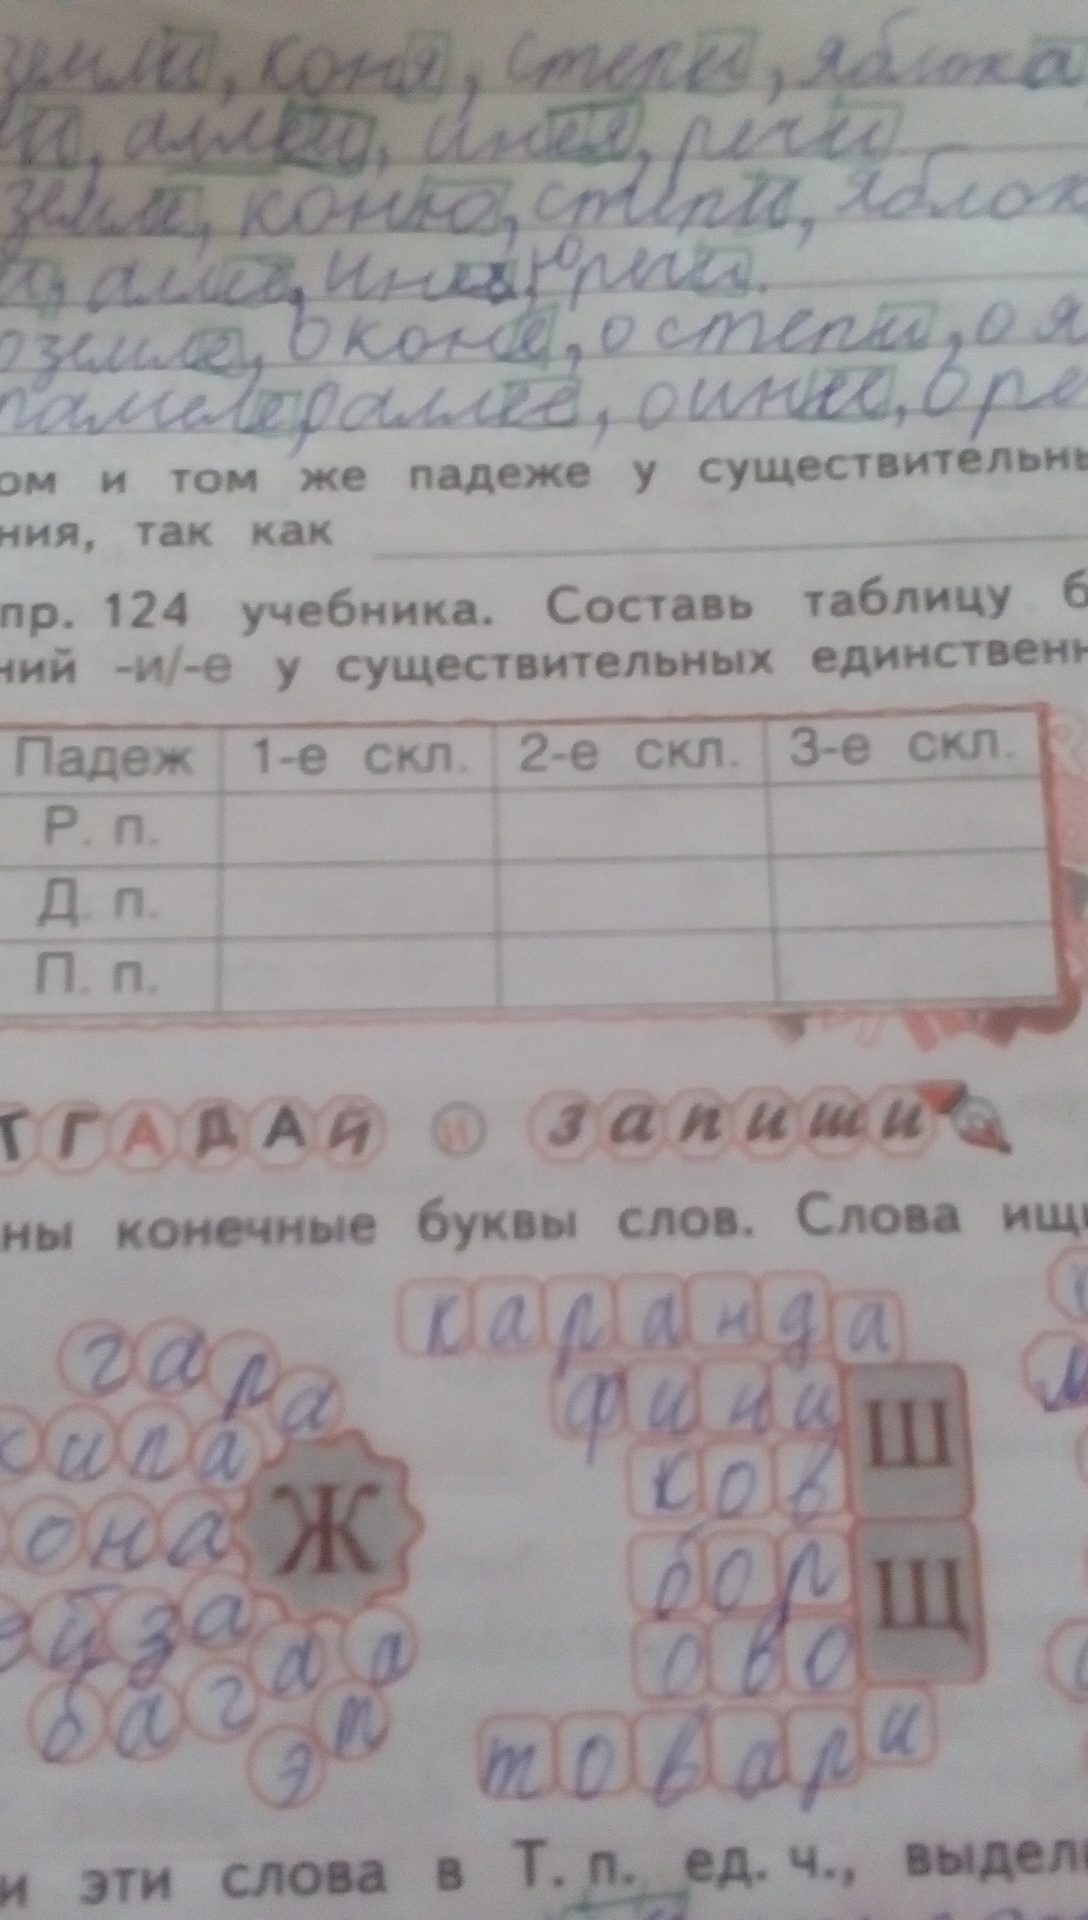 земли, коня, степи, яблока
аллеи, инея, речи
земле, коню, степи,
аллее, инею, речи.
о земле, о коне, о степи, о я
аллее, о инее, о ре
ом и том же падеже у существительны
ния, так как
пр. 124 учебника. Составь таблицу б
ний -и/-е у существительных единственн
Падеж 1-е скл. 2-е скл. 3-е скл.
Р. п.
Д. п.
П. п.
ТГАДАЙ и запиши
ны конечные буквы слов. Слова ищи
каранда
гара
фини
кипа
Ш
ков
она
Ж
бор
Щ
ейза
ово
бага
эта
товари
и эти слова в Т. п. ед. ч., выдел